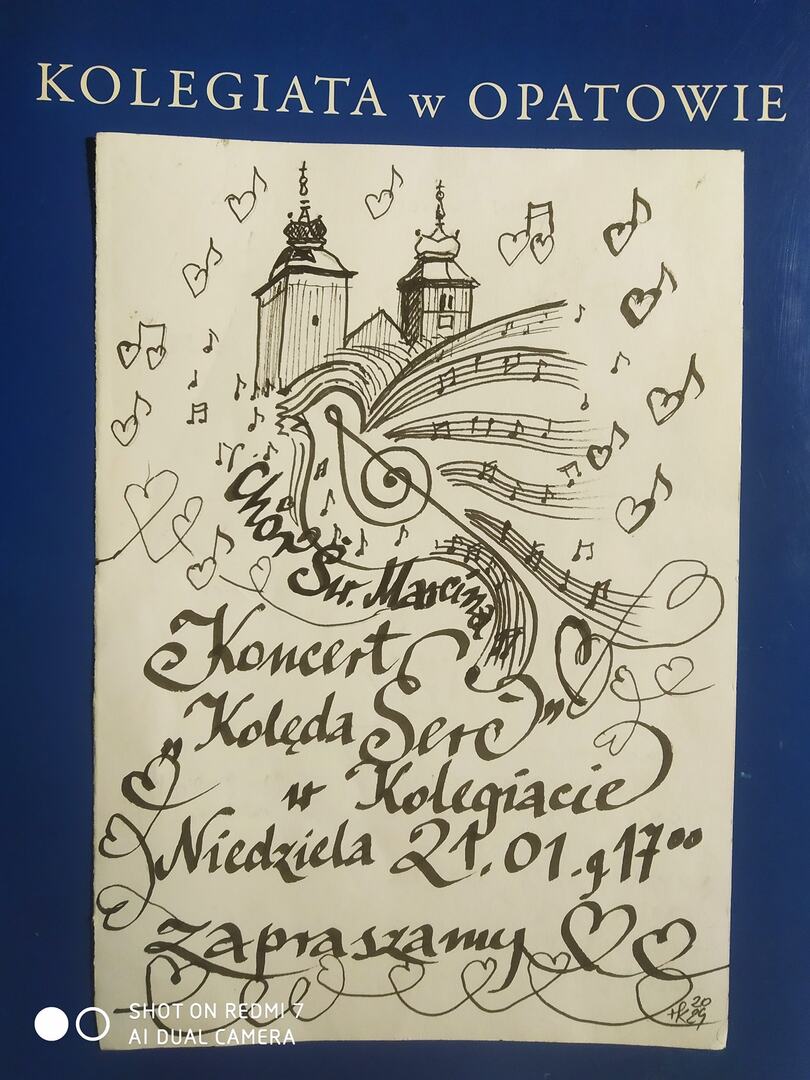 KOLEGIATA w OPATOWIE
Chór Św. Marcina
Koncert
"Kolęda Serc"
w Kolegiacie
Niedziela 21.01. g 17⁰⁰
Zapraszamy
20
24
SHOT ON REDMI 7
AI DUAL CAMERA